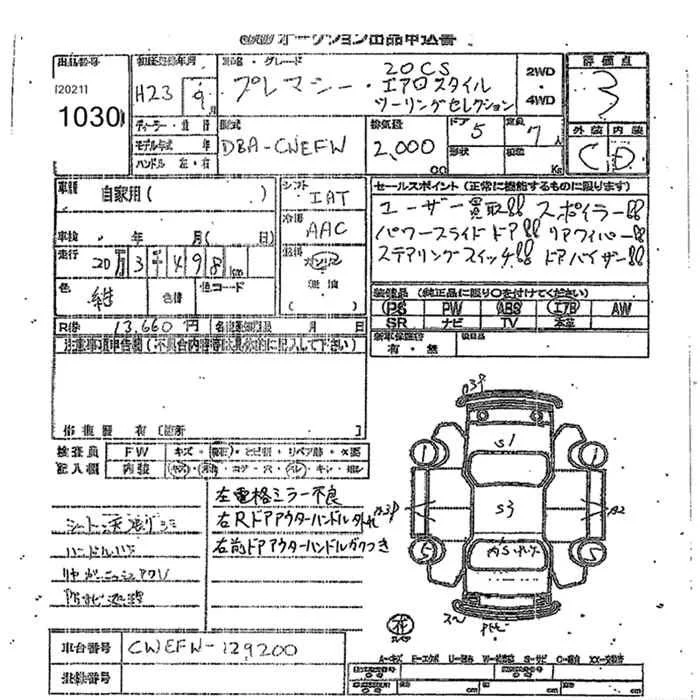 オークション出品申込書
出品番号
(20211
1030
初度登録年月
H23 9月
車名・グレード
プレマシー・
20CS
エアロスタイル
ツーリングセレクション
2WD
・
4WD
評価点
3
外装 内装
C D
ディーラー・並行
モデル年式 年
ハンドル 左・右
型式
DBA-CWEFW
排気量
2,000
cc
ドア 5
形状
定員 7人
積載
Kg
車歴 自家用( )
シフト
IAT
車検 年 月( 日)
冷房
AAC
走行 20万3千498km
燃料
ガソリン
軽油
( )
色 紺 色替 色コード
R券 13,660円 名義変更期限 月 日
セールスポイント(正常に機能するものに限ります)
ユーザー買取!! スポイラー!!
パワースライドドア!! リアワイパー!!
ステアリングスイッチ!! ドアバイザー!!
装備品 (純正品に限り○を付けてください)
PS PW ABS エアB AW
SR ナビ TV 本革
新車保証書
有・無
後日品
注意事項申告欄(不具合内容等は具体的に記入して下さい)
修復歴 有〔箇所 〕
検査員
記入欄
FW キズ・
内装
シート・天張りシミ
左電格ミラー不良
右Rドアアウターハンドル
右前ドアアウターハンドルガタつき
S1
S3
A3P
A2
車台番号 CWEFW-129200
登録番号
A-キズ E-エクボ U-凹み W-補修跡 S-サビ C-腐食 XX-交換済
cm cm cm cm